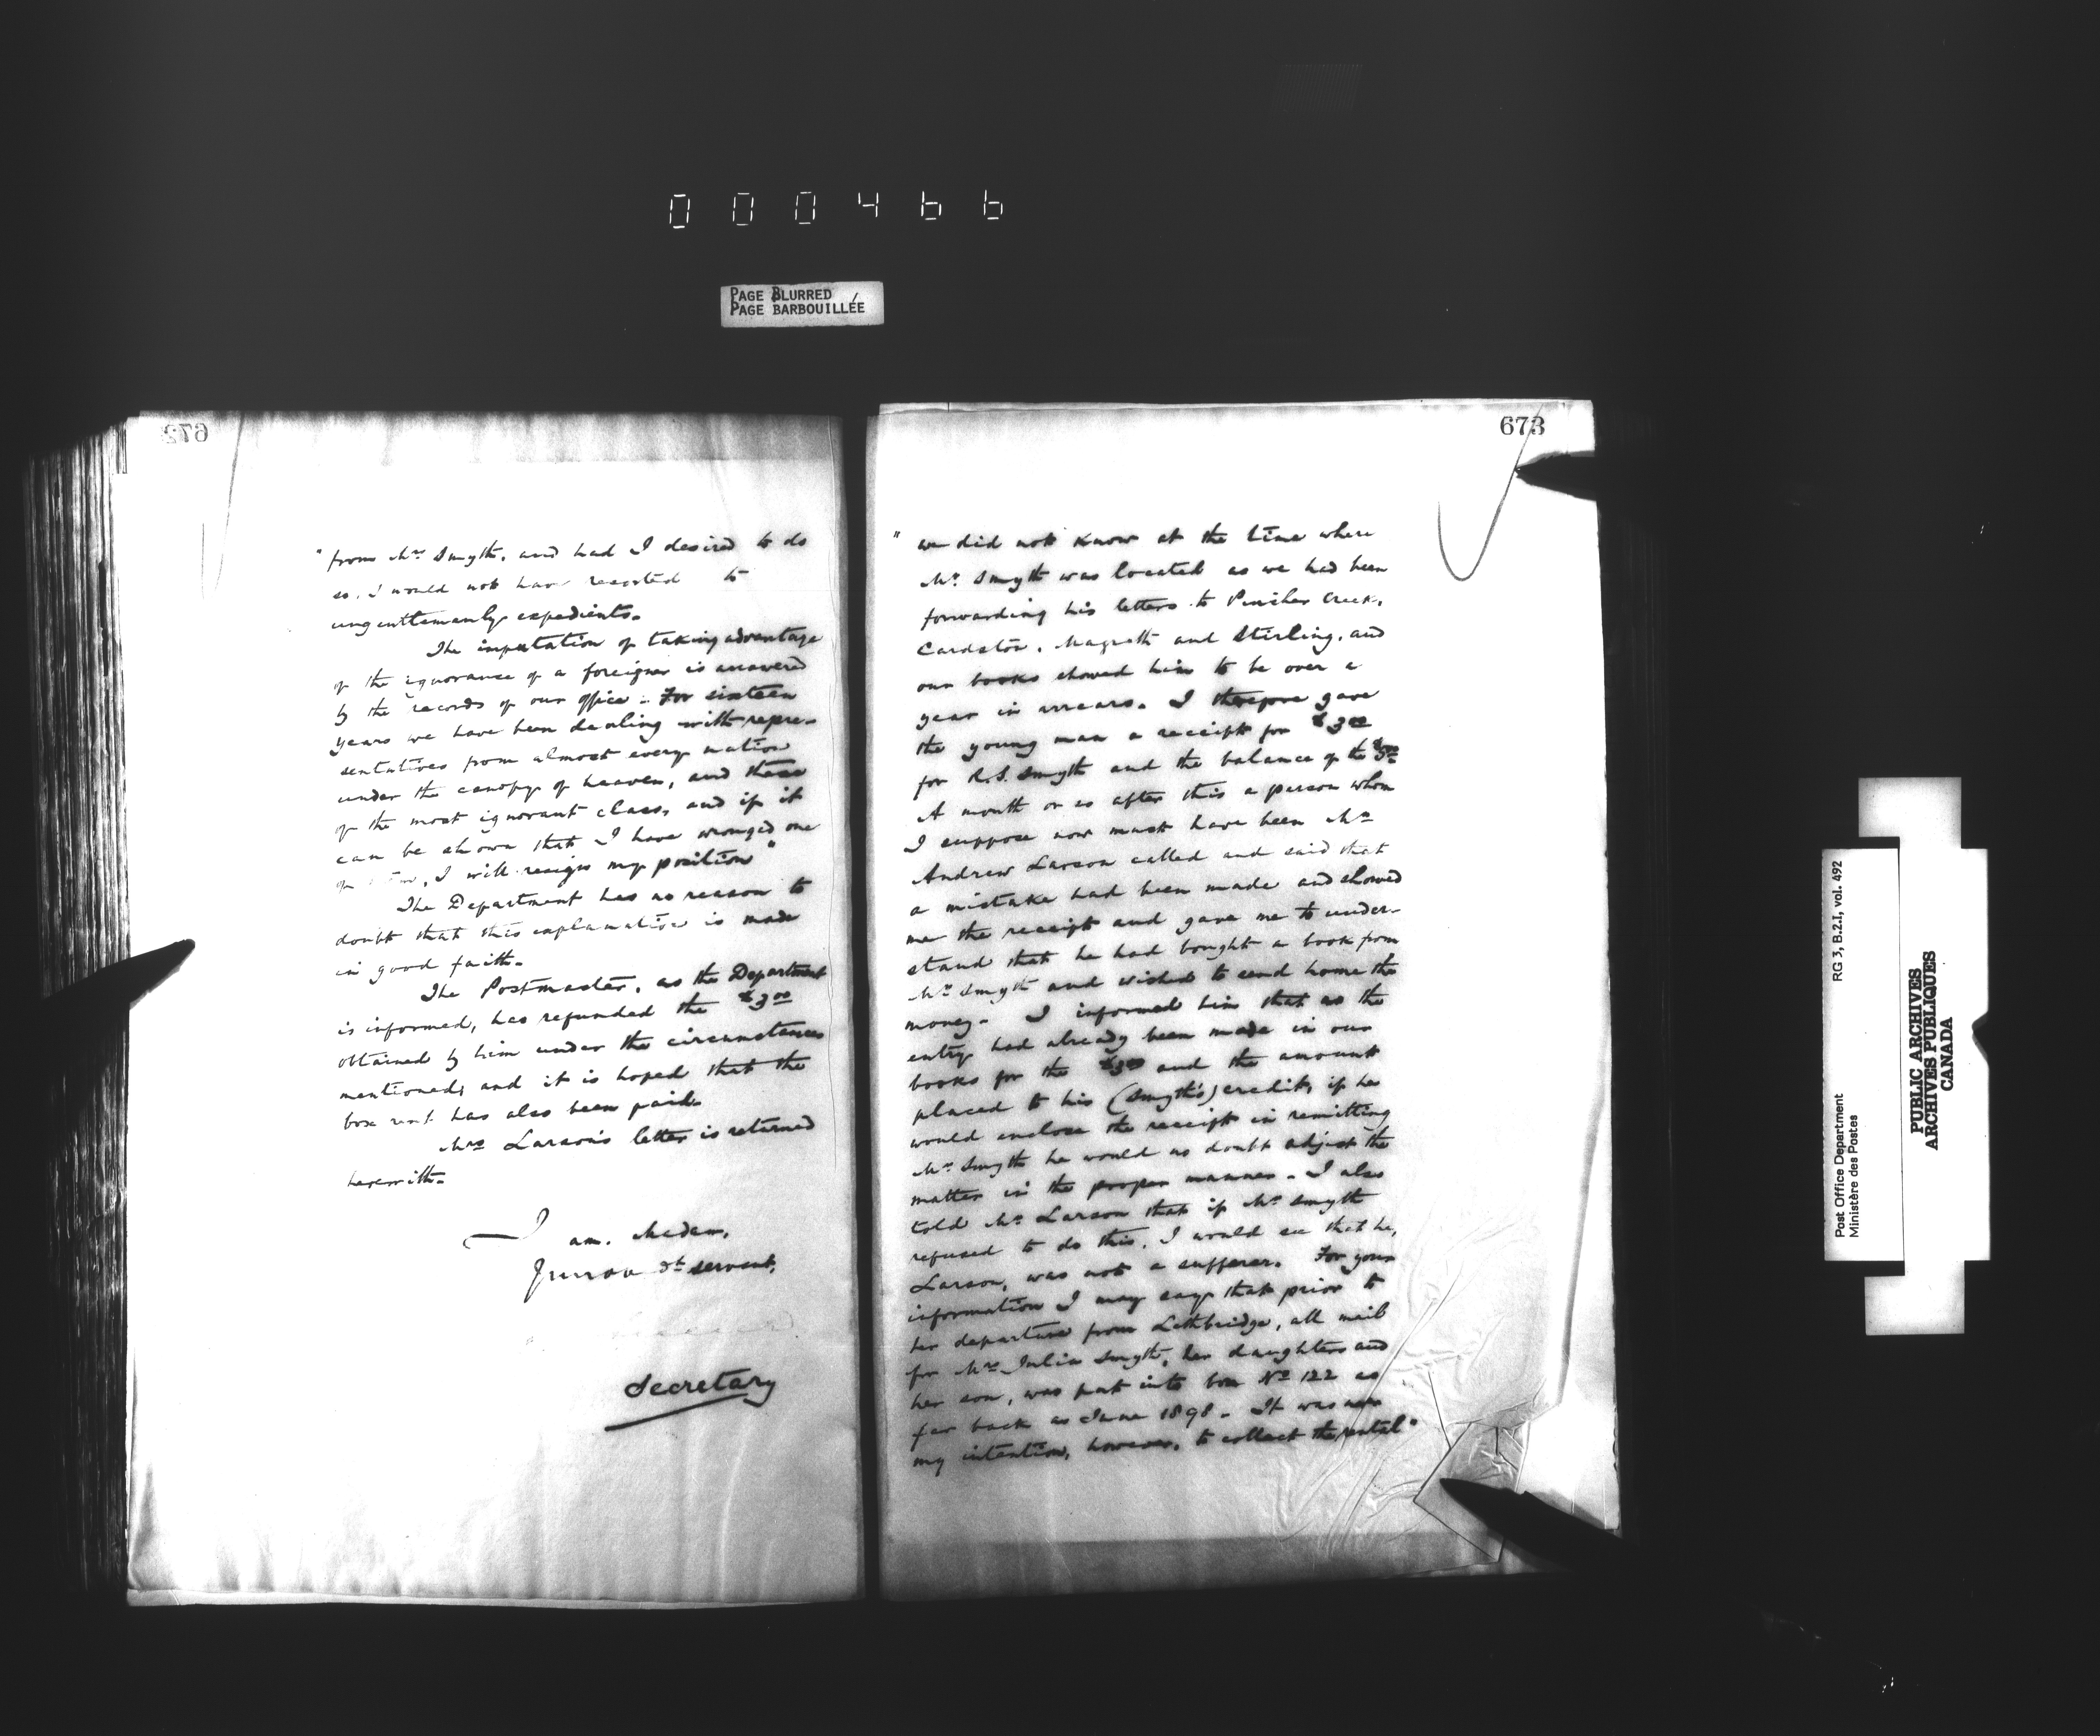 000466
PAGE BLURRED
PAGE BARBOUILLÉE
672
" from Mrs Smyth, and had I desired to do
so, I would not have resorted to
ungentlemanly expedients.
The imputation of taking advantage
of the ignorance of a foreigner is answered
by the records of our office. For sixteen
years we have been dealing with repre-
sentatives from almost every nation
under the canopy of heaven, and these
of the most ignorant class, and if it
can be shown that I have wronged one
of, I will resign my position"
The Department has no reason to
doubt that this explanation is made
in good faith.
The Postmaster, as the Department
is informed, has refunded the $3.00
obtained by him under the circumstances
mentioned, and it is hoped that the
box rent has also been paid.
Mrs Larson's letter is returned
herewith.
I am, Madam,
servant,
Secretary
673
" we did not know at the time where
Mr. Smyth was located as we had been
forwarding his letters to Pincher Creek,
Cardston, Magrath and Stirling, and
our books showed him to be over a
year in arrears. I therefore gave
the young man a receipt for $3.00
for R.S. Smyth and the balance of the
A month or so after this a person whom
I suppose now must have been Mr
Andrew Larson called and said that
a mistake had been made and showed
me the receipt and gave me to under-
stand that he had bought a book from
Mr Smyth and wished to send home the
money. I informed him that as the
entry had already been made in our
books for the $3.00 and the amount
placed to his (Smyth's) credit, if he
would enclose the receipt in remitting
Mr Smyth he would no doubt adjust the
matter in the proper manner. I also
told Mr Larson that if Mr Smyth
refused to do this, I would see that he,
Larson, was not a sufferer. For your
information I may say that prior to
her departure from Lethbridge, all mail
for Mrs Julia Smyth, her daughters and
her son, was put into box No 122 as
far back as June 1898. It was
my intention, however, to collect the rental"
Post Office Department
Ministère des Postes
RG 3, B.2.I, vol. 492
PUBLIC ARCHIVES
ARCHIVES PUBLIQUES
CANADA